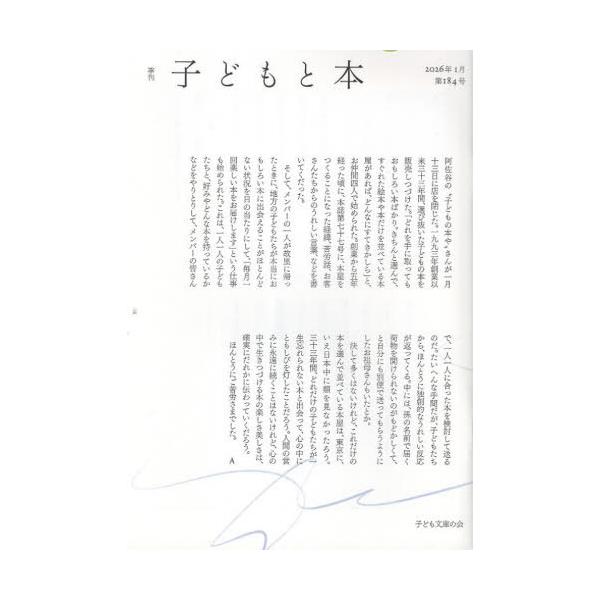 季刊
子どもと本
2026年1月
第184号
阿佐谷の「子どもの本や」さんが一月
十三日に店を閉じた。一九九三年創業以
来三十三年間、選び抜いた子どもの本を
販売しつづけた。「どれを手に取っても
おもしろい本ばかり。きちんと選んで、
すぐれた絵本や本だけを並べている本
屋があれば、どんなにすてきかしら」と、
お仲間四人で始められた。創業から五年
経った頃に、本誌第七十七号に、本屋を
つくることになった経緯、苦労話、お客
さんたちからのうれしい言葉、などを書
いてくださった。
そして、メンバーの一人が故里に帰っ
たときに、地方の子どもたちが本当にお
もしろい本に出会えることがほとんど
ない状況を目の当たりにして、「毎月一
回楽しい本をお届けします」という仕事
も始められた。これは、一人一人の子ども
たちと、好みやどんな本を持っているか
などをやりとりして、メンバーの皆さん
で、一人一人に合った本を検討して送る
のだ。たいへんな手間だが、子どもたち
から、ほんとうに独創的なうれしい反応
が返ってくる。中には、孫の名前で届く
荷物を開けられないのがもどかしくて、
と自分にも別便で送ってもらうように
したお祖母さんもいたとか。
決して多くはないけれど、これだけの
本を選んで並べている本屋は、東京に、
いえ日本中に類を見なかったろう。
三十三年間、どれだけの子どもたちが一
生忘れられない本と出会って、心の中に
ともしびを灯したことだろう。人間の営
みに永遠に続くことはないけれど、心の
中で生きつづける本の楽しさ美しさは、
確実にだれかに伝わっていくだろう。
ほんとうに、ご苦労さまでした。 A
子ども文庫の会